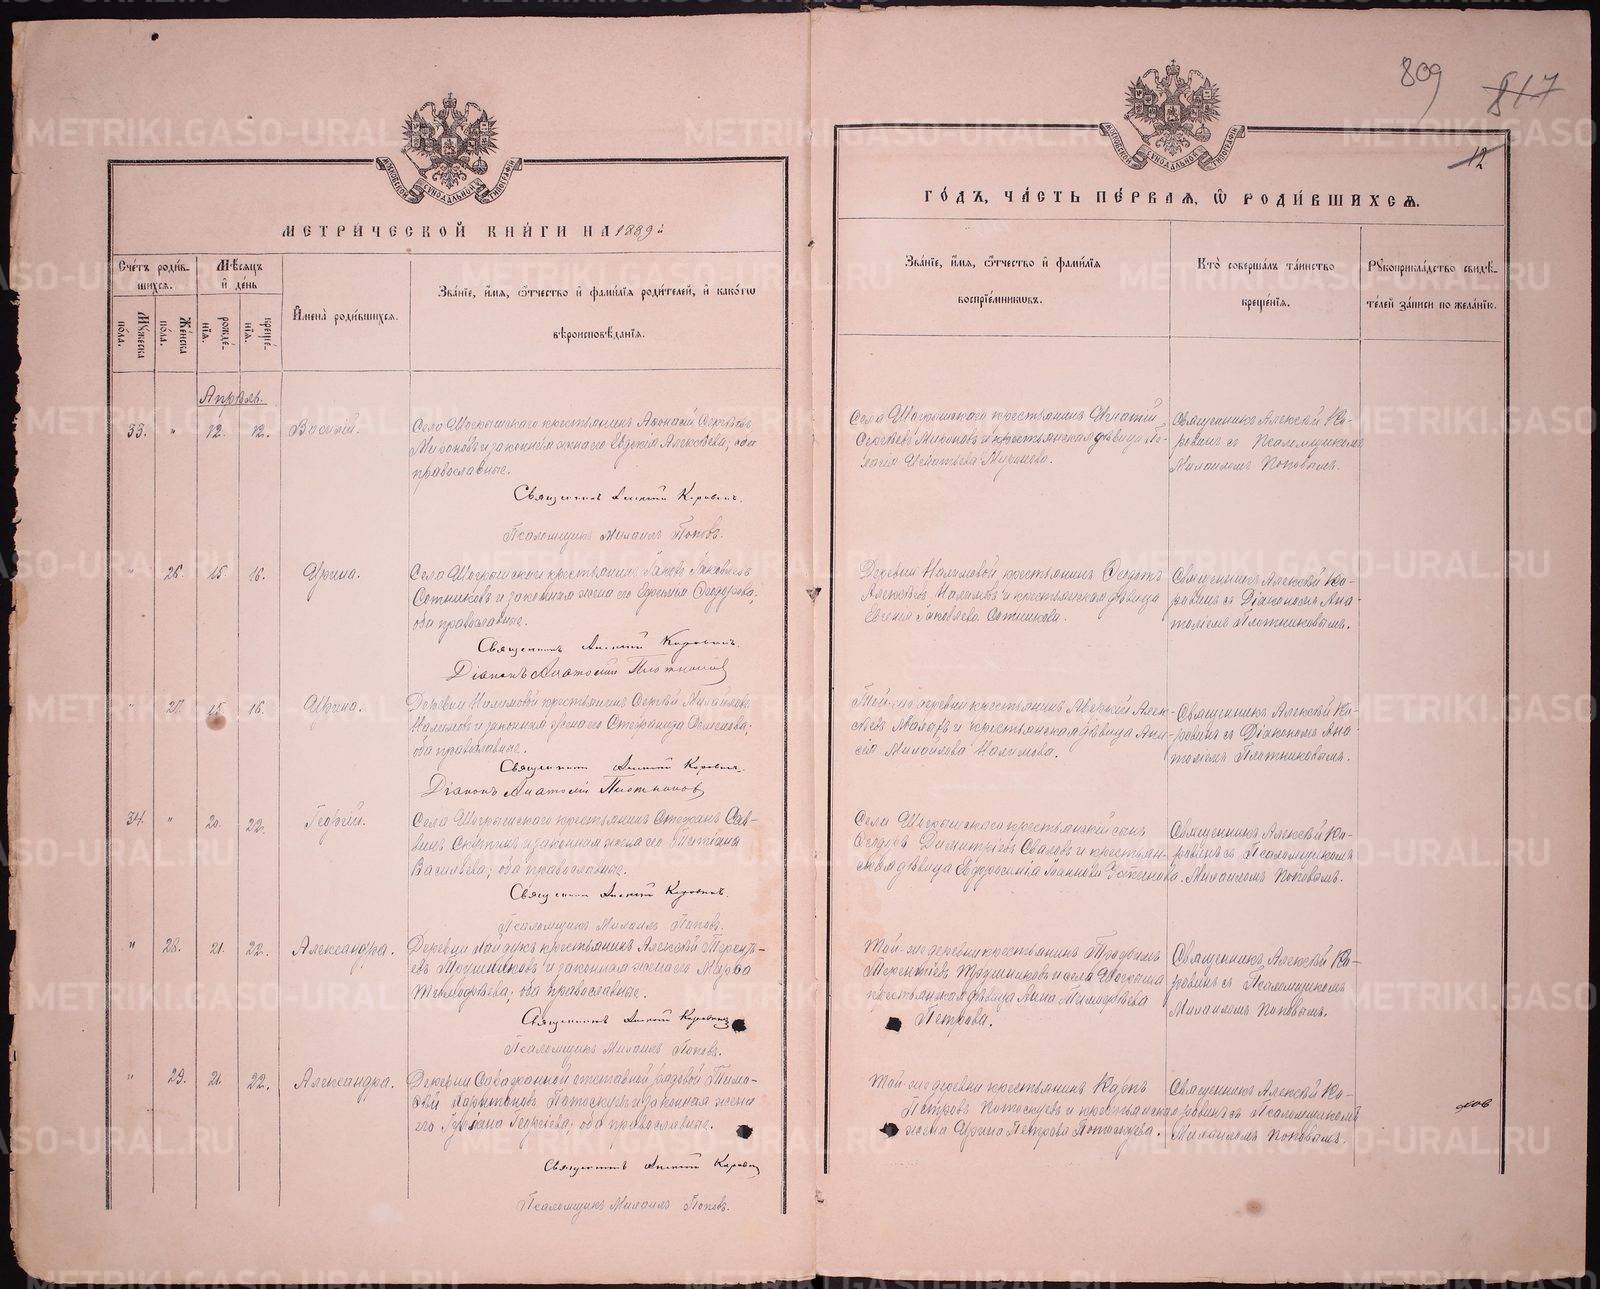 809
817
12
МЕТРИ́ЧЕСКОЙ КНИ́ГИ НА 1889й
ГО́ДЪ, ЧА́СТЬ ПЕ́РВАѦ, Ѡ҆ РОДИ́ВШИХСѦ.
Сче́тъ роди́в-
шихсѧ.
Мꙋ́жеска по́ла.
Же́нска по́ла.
Мѣ́сѧцъ и҆ де́нь
рожде́-нїѧ.
креще́-нїѧ.
И҆мена̀ роди́вшихсѧ.
Зва́нїе, и҆́мѧ, ѻ҆́тчество и҆ фами́лїѧ роди́телей, и҆ како́гѡ
вѣроисповѣ́данїѧ.
Зва́нїе, и҆́мѧ, ѻ҆́тчество и҆ фами́лїѧ
воспрїе́мникѡвъ.
Кто̀ соверша́лъ та́инство
креще́нїѧ.
Рꙋкоприкла́дство свидѣ́-
телей за́писи по жела́нїю.
Апрѣль.
33. " 12. 12. Василій.
Села Шогришскаго крестьянинъ Аѳонасій Сергѣевъ
и законная жена его Евдокія Алексѣева; оба
православные.
Священникъ Алексій Коровинъ.
Псаломщикъ Михаилъ Поповъ.
Села Шогришскаго крестьянинъ Игнатій
Сергѣевъ и крестьянская дѣвица Пе-
лагія Игнатьева
Священникъ Алексѣй Ко-
ровинъ съ Псаломщикомъ
Михаиломъ Поповымъ.
" 26. 15. 16. Ирина.
Села Шогришскаго крестьянинъ Іаковъ Іаковлевъ
Сотниковъ и законная жена его Ефросинья
оба православные.
Священникъ Алексій Коровинъ.
Діаконъ Анатолій Плотниковъ
Деревни Налимовой крестьянинъ Ѳедотъ
Алексѣевъ Налимовъ и крестьянская дѣвица
Евгенія Іаковлева Сотникова.
Священникъ Алексѣй Ко-
ровинъ съ Діакономъ Ана-
толіемъ Плотниковымъ.
" 27. 15. 16. Ирина.
Деревни Налимовой крестьянинъ Сергѣй Михайловъ
Налимовъ и законная жена его Стефанида
оба православные.
Священникъ Алексій Коровинъ.
Діаконъ Анатолій Плотниковъ
Той-же деревни крестьянинъ Аверкій Алек-
сѣевъ и крестьянская дѣвица Ани-
сія Михайлова Налимова.
Священникъ Алексѣй Ко-
ровинъ съ Діакономъ Ана-
толіемъ Плотниковымъ.
34. " 20. 22. Георгій.
Села Шогришскаго крестьянинъ Стефанъ Сав-
винъ и законная жена его Татіана
Васильева; оба православные.
Священникъ Алексій Коровинъ.
Псаломщикъ Михаилъ Поповъ.
Села Шогришскаго крестьянскій сынъ
Ѳедоръ Димитріевъ и крестьян-
ская дѣвица Евфросинія Іоаннова
Священникъ Алексѣй Ко-
ровинъ съ Псаломщикомъ
Михаиломъ Поповымъ.
" 28. 21. 22. Александра.
Деревни крестьянинъ Алексѣй Терентi-
евъ Трушниковъ и законная жена его Марѳа
Тимоѳѣева; оба православные.
Священникъ Алексій Коровинъ
Псаломщикъ Михаилъ Поповъ.
Той-же деревни крестьянинъ Трофимъ
Терентіевъ Трушниковъ и села Шогриша
крестьянская дѣвица Анна Тимоѳѣева
Петрова.
Священникъ Алексѣй Ко-
ровинъ съ Псаломщикомъ
Михаиломъ Поповымъ.
" 29. 21. 22. Александра.
Деревни Сарафанной отставной рядовой Тимо-
ѳей Харитоновъ Потоскуевъ и законная жена
его Георгіева; оба православные.
Священникъ Алексій Коровинъ
Псаломщикъ Михаилъ Поповъ.
Той-же деревни крестьянинъ Карпъ
Петровъ Потоскуевъ и крестьянская
жена Ирина Петрова Потоскуева.
Священникъ Алексѣй Ко-
ровинъ съ Псаломщикомъ
Михаиломъ Поповымъ.
METRIKI.GASO-URAL.RU